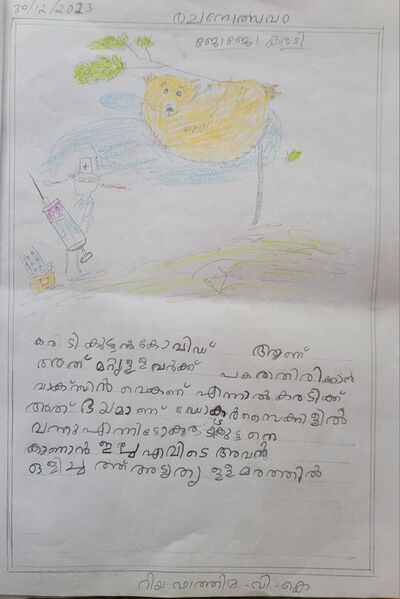 30/12/2023
രചനോത്സവം
ജോജോ കരടി
കരടി കുട്ടൻ കോവിഡ് ആണ്
അത് മറ്റുള്ളവർക്ക് പകരാതിരിക്കാൻ
വാക്സിൻ വെകണ് എന്നാൽ കരടിക്ക്
അത് ഭയമാണ് ഡോക്ടർ സൈക്കിളിൽ
വന്നു എന്നിട്ടോ
കാണാൻ ഇല്ല എവിടെ അവൻ
ഒളിച്ചു അടുത്തു ഉള്ള മരത്തിൽ
റിയ ഫാത്തിമ - വി - കെ